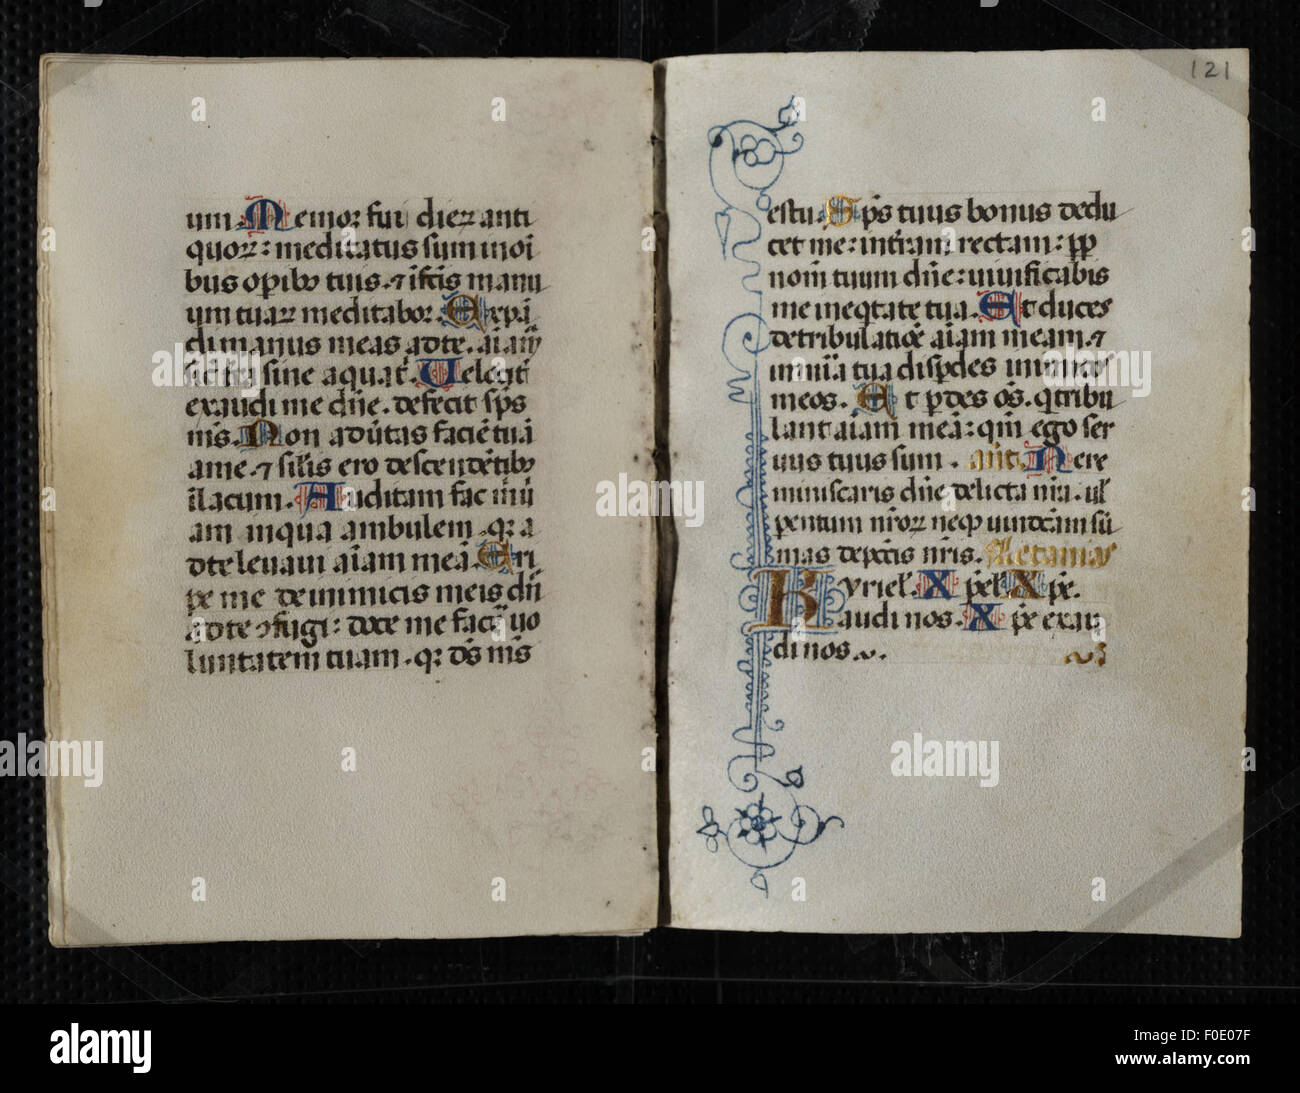 um. Memor fui dierꝝ anti
quorꝝ: meditatus sum in oī
bus opībꝰ tuis. ⁊ ī fc̄is manu
um tuarꝝ meditaborꝝ. Expā
di manus meas ad te. aīa m̄
sic̄ t̄ra sine aqua t̄. Velocit̄
exaudi me dn̄e. defecit sp̄s
m̄s. Non aūtas faciē tuā
a me. ⁊ sil̄is ero descendētibꝰ
ī lacum. Auditam fac m̄
am in qua ambulem. qꝝ a
d te levavi aīam meā. Eri
pe me de inimicis meis dn̄
ad te ꝯfugi: doce me facē vo
luntatem tuam. qꝝ ds̄ m̄s
121
es tu. Sp̄s tuus bonus dedu
cet me in t̄ram rectam: ꝓp̄
nom̄ tuum dn̄e: vivificabis
me in eq̄tate tua. Et duces
de tribulatiōe aīam meam. ⁊
in mīa tua disp̄des inimicos
meos. Et p̄des os̄. q̄ tribu
lant aīam meā: qm̄ ego ser
vus tuus sum. añt. Ne re
miniscaris dn̄e delicta nr̄a. vl̄
parentum nr̄orꝝ neqꝫ vindc̄am sū
mas de pcc̄is nr̄is. Letaniae
Kyriel̄. Xp̄el̄ Xp̄e.
audi nos. Xp̄e exau
di nos.
alamy
a
alamy stock photo
F0E07F
www.alamy.com